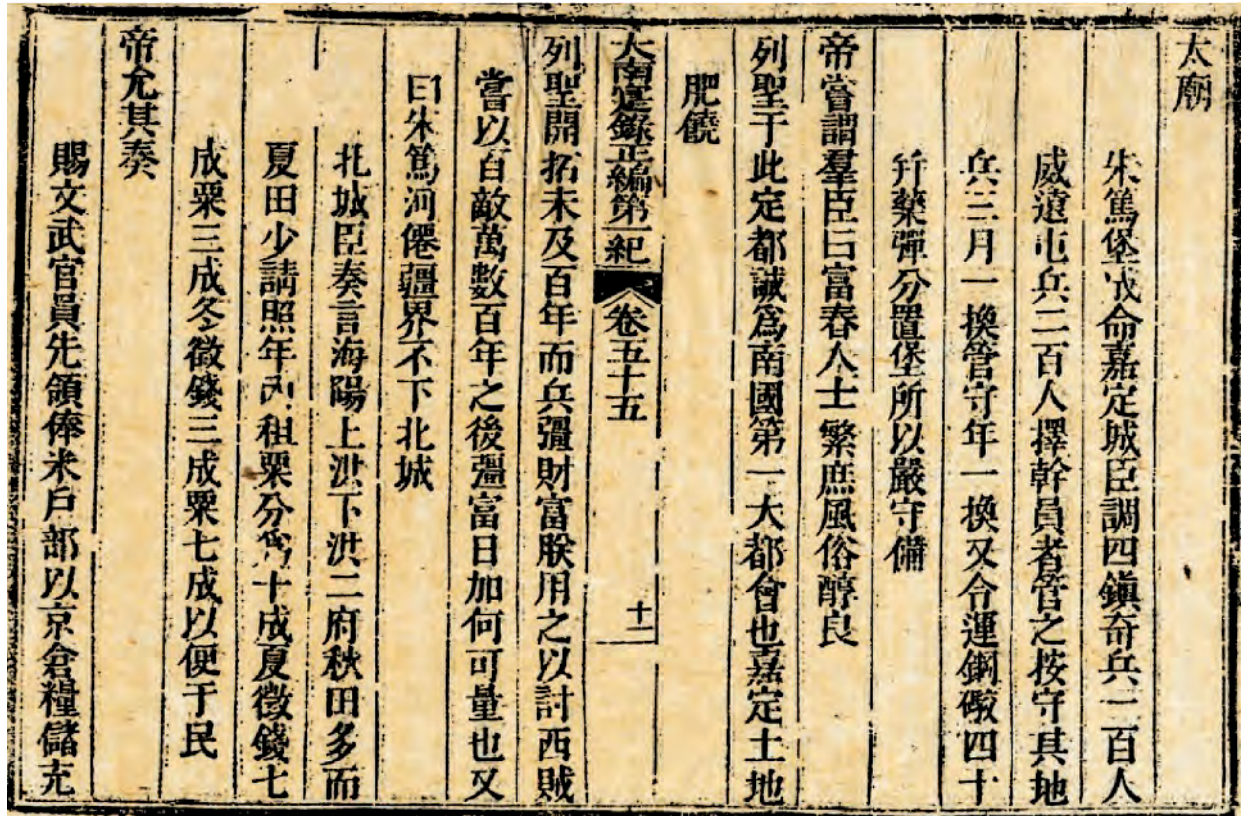 太廟
朱篤堡戍命嘉定城臣調四鎮奇兵二百人
威遠屯兵二百人擇幹員者管之按守其地
兵三月一換管守年一換又令運銅礮四十
并藥彈分置堡所以嚴守備
帝嘗謂羣臣曰富春人士繁庶風俗醇良
列聖于此定都誠爲南國第一大都會也嘉定土地
肥饒
大南寔錄正編第一紀 卷五十五 十二
列聖開拓未及百年而兵彊財富朕用之以討西賊
嘗以百敵萬數百年之後彊富日加何可量也又
曰朱篤河僊疆界不下北城
北城臣奏言海陽上洪下洪二府秋田多而
夏田少請照年內租粟分爲十成夏徵錢七
成粟三成冬徵錢三成粟七成以便于民
帝允其奏
賜文武官員先領俸米戶部以京倉糧儲充